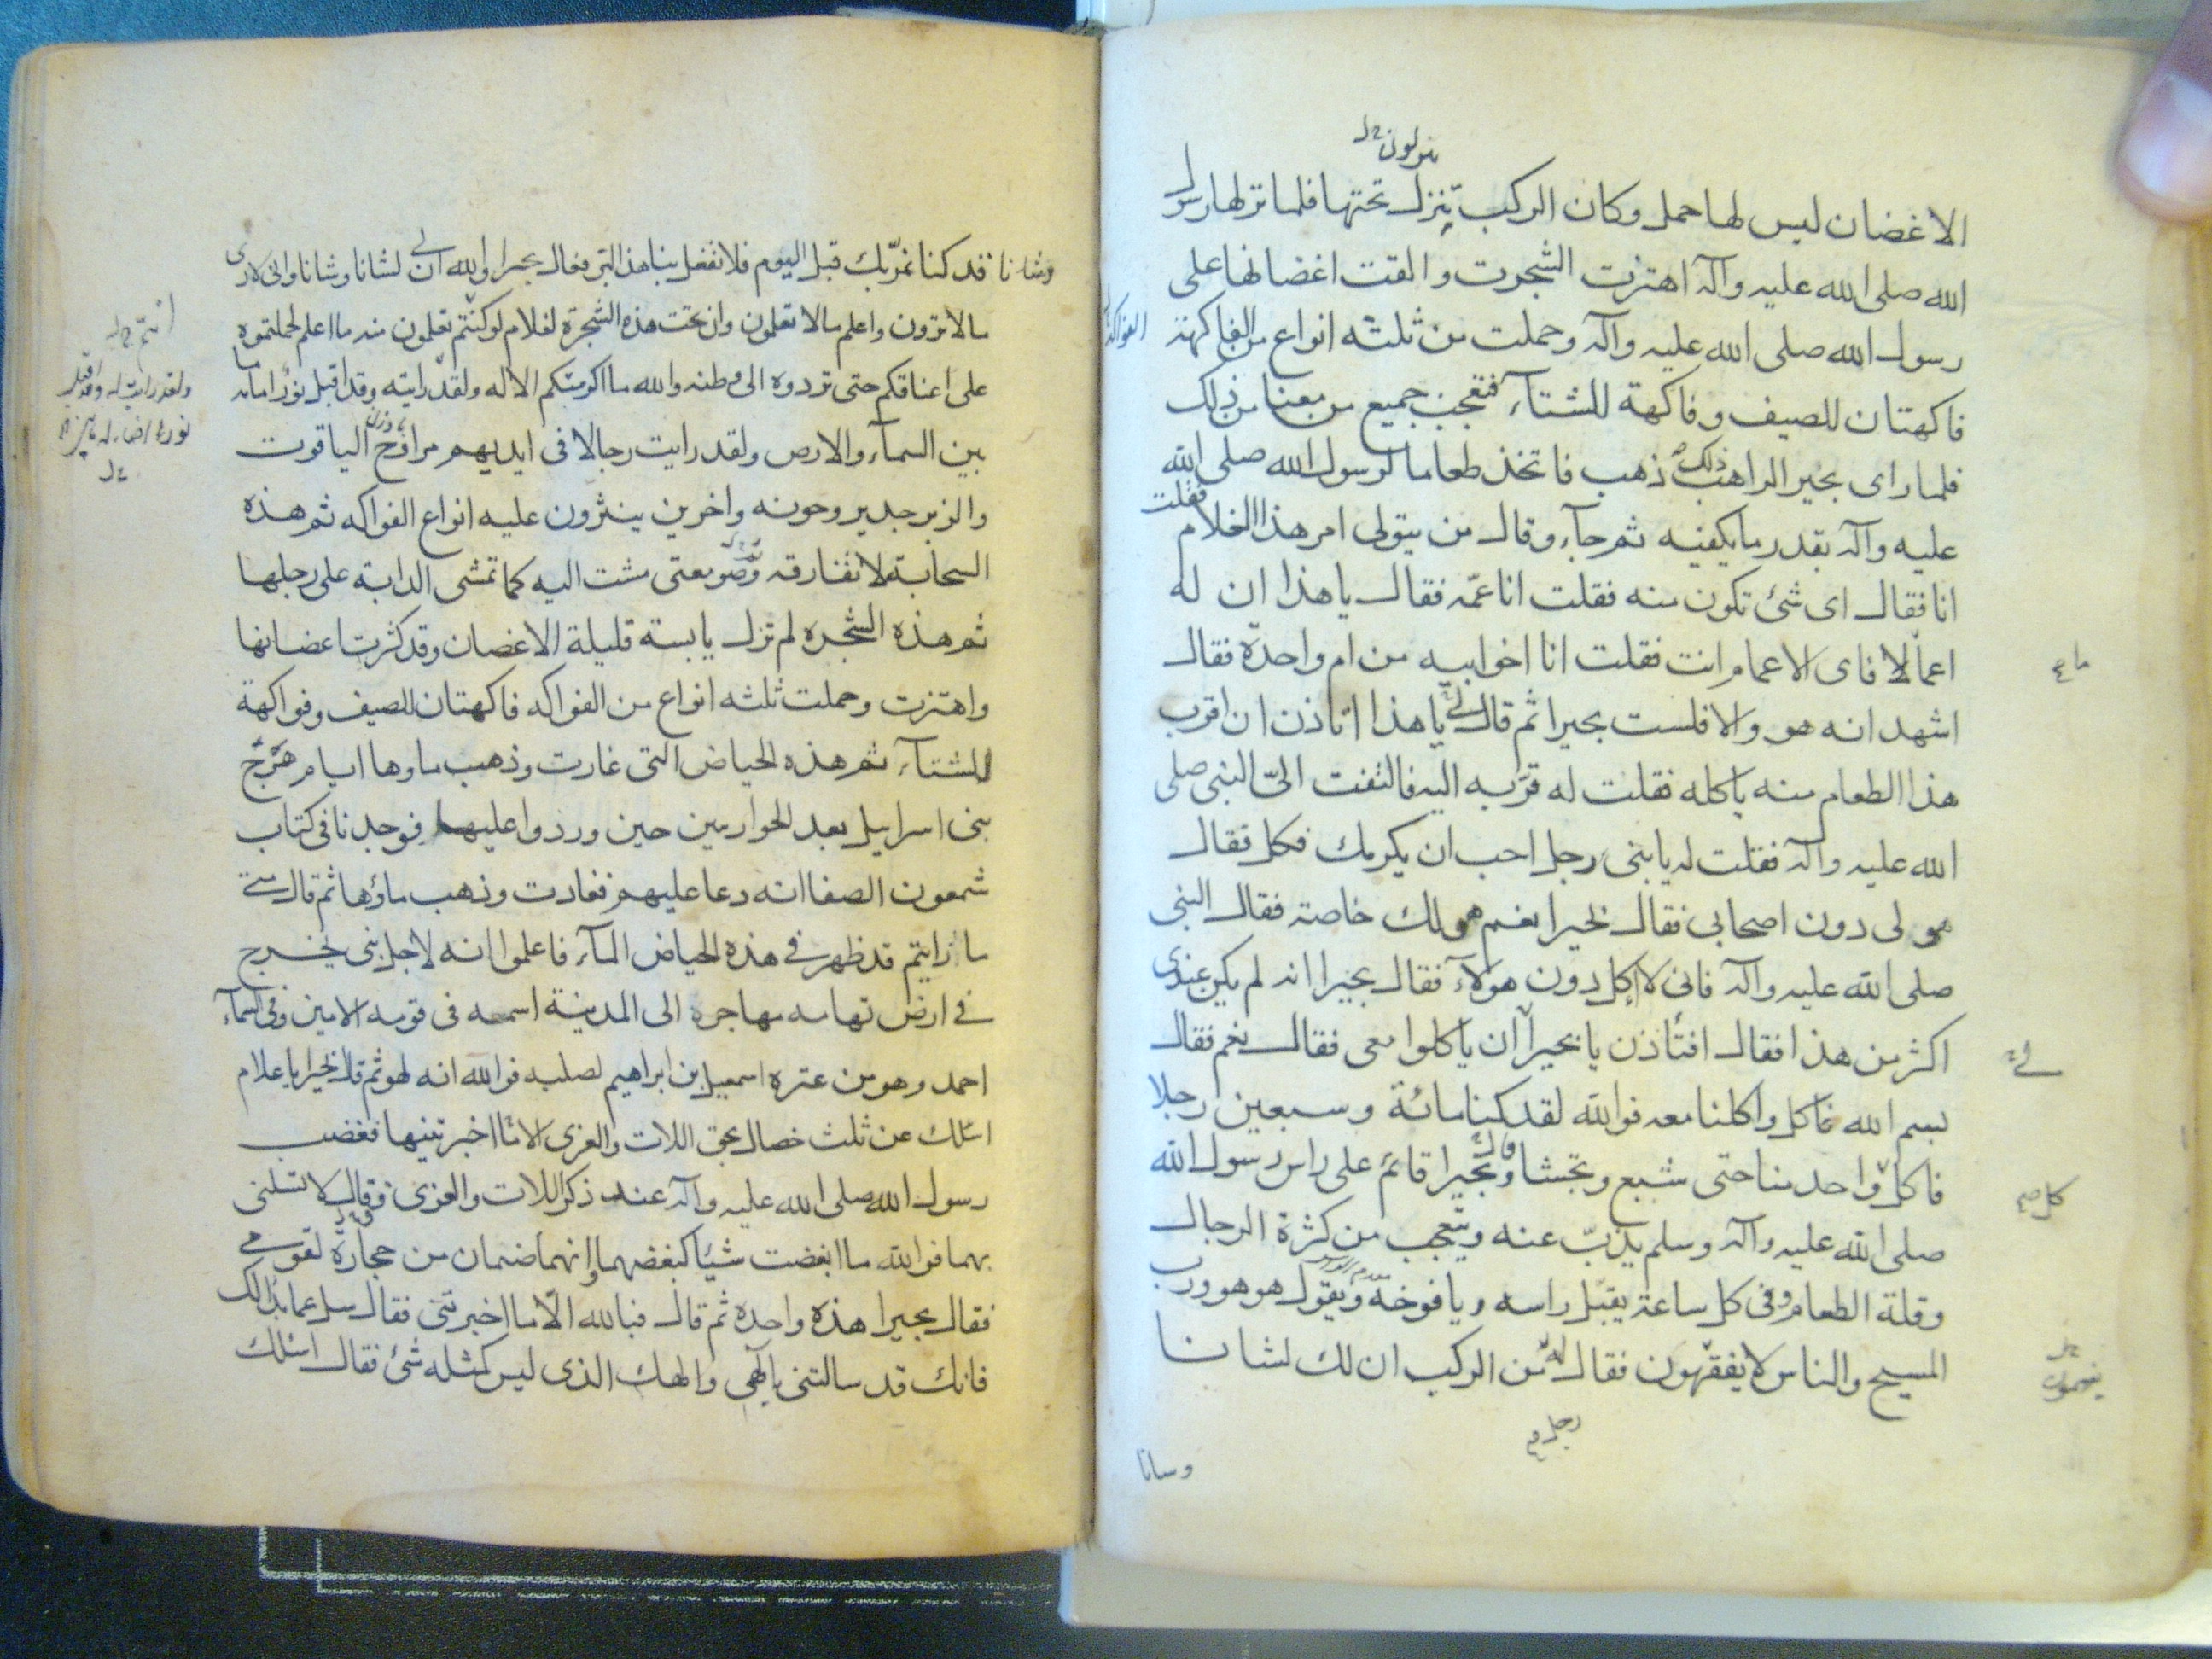 ينزلون
الاغضان ليس لها حمل وكان الركب ينزل تحتها فلما نزلها رسول
الله صلى الله عليه وآله اهتزت الشجرت والقت اغضانها على
رسول الله صلى الله عليه وآله وحملت من ثلثه انواع من الفاكهة
الفواكه
فاكهتان للصيف وفاكهة للشتآء فتعجب جميع من معنا من ذلك
فلما راى بحيرا الراهب ذلك ذهب فاتخذ طعاما لرسول الله صلى الله
عليه وآله بقدر ما يكفيه ثم جآء وقال من يتولى امر هذا الغلام فقلت
انا فقال اى شئ تكون منه فقلت انا عمّه فقال يا هذا ان له
اعمالا فاى الاعمام انت فقلت انا اخو ابيه من ام واحدة فقال
اشهد انه هو والا فلست بحيرا ثم قال لى يا هذا اتاذن ان اقرب
هذا الطعام منه ياكله فقلت له قرّبه اليه فالتفت الىّ النبى صلى
الله عليه وآله فقلت له يا بنى رجل احب ان يكرمك فكل فقال
هو لى دون اصحابى فقال بحيرا نعم هو لك خاصة فقال النبى
صلى الله عليه وآله فانى لا اكل دون هولآء فقال بحيرا انه لم يكن عندى
اكثر من هذا فقال افتأذن يا بحيرا ان ياكلوا معى فقال نعم فقال
بسم الله فاكل واكلنا معه فوالله لقد كنا مائة وسبعين رجلا
فاكل واحد منا حتى شبع وتجشا وبحيرا قائم على راس رسول الله
صلى الله عليه وآله وسلم يذبّ عنه ويتعجب من كثرة الرجال
وقلة الطعام وفى كل ساعة يقبّل راسه ويافوخه ويقول هو هو ورب
المسيح والناس لا يفقهون فقال له من الركب ان لك لشانا
رجل
وسانا
وشانا قد كنا نمرّ بك قبل اليوم فلا تفعل بنا هذا البر فقال بحيرا والله ان لى لشانا وشانا وانى لارى
ما لا ترون واعلم ما لا تعلمون وان تحت هذه الشجرة لغلام لو كنتم تعلمون منه ما اعلم لحملتموه
على اعناقكم حتى تردوه الى وطنه والله ما اكرمتكم الا له ولقد رايته وقد اقبل نور امامه ما
بين السمآء والارض ولقد رايت رجالا فى ايديهم مراوح الياقوت
والزبرجد يروحونه واخرين ينثرون عليه انواع الفواكه ثم هذه
السحابة لا تفارقه وصومعتى مشت اليه كما تمشى الدابة على رجلها
ثم هذه الشجره لم تزل يابسة قليلة الاغصان وقد كثرت اعضانها
واهتزت وحملت ثلثه انواع من الفواكه فاكهتان للصيف وفواكهة
للشتآء ثم هذه الحياض التى غارت وذهب ماوها ايام
بنى اسراييل بعد الحواريين حين وردوا عليهم فوجدنا فى كتاب
شمعون الصفا انه دعا عليهم فغارت وذهب ماؤها ثم قال متى
ما رايتم قد ظهر فى هذه الحياض المآء فاعلموا انه لاجل نبى يخرج
فى ارض تهامه مهاجره الى المدينة اسمه فى قومه الامين وفى السمآء
احمد وهو من عتره اسمعيل بن ابراهيم لصلبه فوالله انه لهو ثم قال بحيرا يا غلام
اسئلك عن ثلث خصال بحق اللات والعزى الا ما اخبرتنيها فغضب
رسول الله صلى الله عليه وآله عند ذكر اللات والعزى وقال لا تسئلنى
بهما فوالله ما ابغضت شيئا كبغضهما وانهما ضمان من حجارة لقومى
فقال بحيرا هذه واحده ثم قال فبالله الّا ما اخبرتنى فقال سل عما بدالك
فانك قد سالتنى بالهى والهك الذى ليس كمثله شئ فقال اسئلك